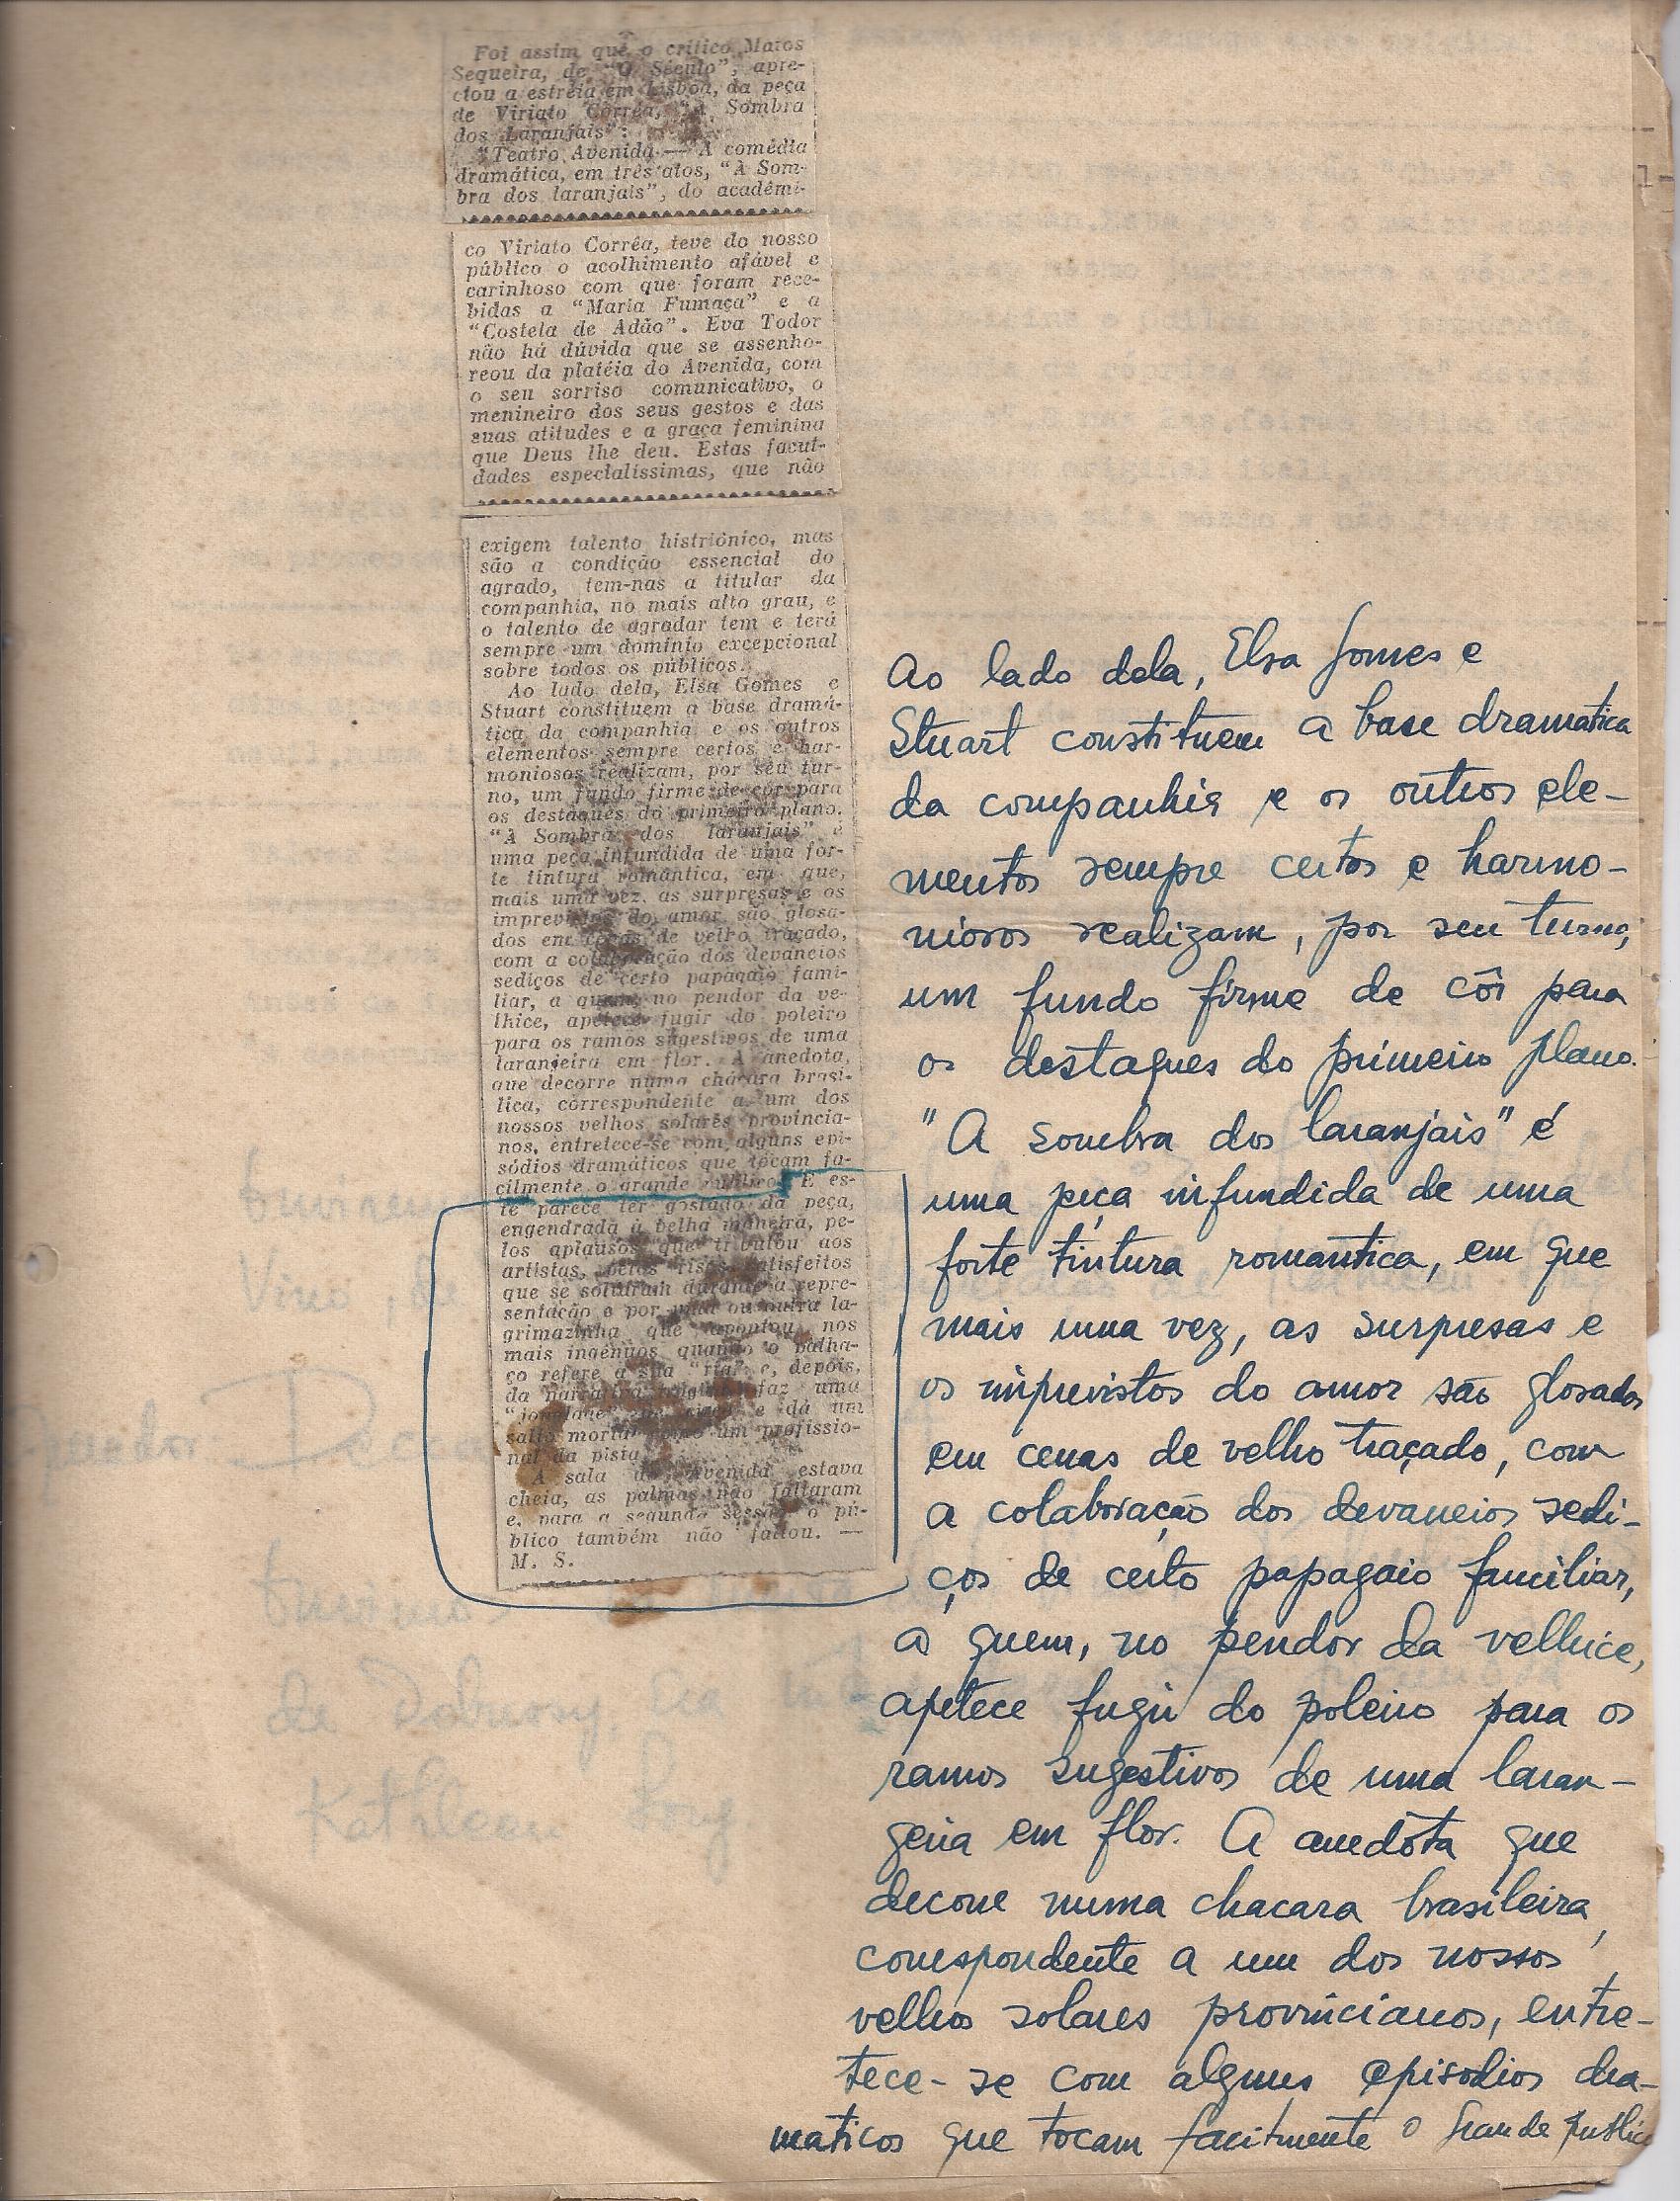 Foi assim que o crítico Matos
Sequeira, de "O Século", apre-
ciou a estréia em Lisboa, da peça
de Viriato Corrêa, "À Sombra
dos Laranjais":
"Teatro Avenida — A comédia
dramática, em três atos, "À Som-
bra dos laranjais", do acadêmi-
co Viriato Corrêa, teve do nosso
público o acolhimento afável e
carinhoso com que foram rece-
bidas a "Maria Fumaça" e a
"Costela de Adão". Eva Todor
não há dúvida que se assenho-
reou da platéia do Avenida, com
o seu sorriso comunicativo, o
menineiro dos seus gestos e das
suas atitudes e a graça feminina
que Deus lhe deu. Estas facul-
dades especialíssimas, que não
exigem talento histriônico, mas
são a condição essencial do
agrado, tem-nas a titular da
companhia, no mais alto grau, e
o talento de agradar tem e terá
sempre um domínio excepcional
sobre todos os públicos.
Ao lado dela, Elsa Gomes e
Stuart constituem a base dramá-
tica da companhia e os outros
elementos sempre certos e har-
moniosos realizam, por seu tur-
no, um fundo firme de côr para
os destaques do primeiro plano.
"À Sombra dos laranjais" é
uma peça infundida de uma for-
te tintura romântica, em que,
mais uma vez, as surpresas e os
imprevistos do amor são glosa-
dos em cenas de velho traçado,
com a colaboração dos devaneios
sediços de certo papagaio fami-
liar, a quem, no pendor da ve-
lhice, apetece fugir do poleiro
para os ramos sugestivos de uma
laranjeira em flor. A anedota,
que decorre numa chácara brasí-
lica, correspondente a um dos
nossos velhos solares provincia-
nos, entretece-se com alguns epi-
sódios dramáticos que tocam fa-
cilmente o grande público. E es-
te parece ter gostado da peça,
engendrada à velha maneira, pe-
los aplausos que tributou aos
artistas, pelos risos satisfeitos
que se soltaram durante a repre-
sentação e por uma ou outra la-
grimazinha que apontou nos
mais ingênuos quando o palha-
ço refere a sua e, depois,
da narrativa faz uma
e dá um
salto mortal como um profissio-
nal da pista.
A sala do Avenida estava
cheia, as palmas não faltaram
e, para a segunda sessão o pú-
blico também não faltou. —
M. S.
Ao lado dela, Elsa Gomes e
Stuart constituem a base dramatica
da companhia e os outros ele-
mentos sempre certos e harmo-
niosos realizam, por seu turno,
um fundo firme de côr para
os destaques do primeiro plano.
"A sombra dos laranjais" é
uma peça infundida de uma
forte tintura romantica, em que
mais uma vez, as surpresas e
os imprevistos do amor são glosados
em cenas de velho traçado, com
a colaboração dos devaneios sedi-
ços de certo papagaio familiar,
a quem, no pendor da velhice,
apetece fugir do poleiro para os
ramos sugestivos de uma laran-
geira em flor. A anedota que
decorre numa chacara brasileira,
correspondente a um dos nossos
velhos solares provincianos, entre-
tece-se com alguns episodios dra-
maticos que tocam facilmente o grande publico